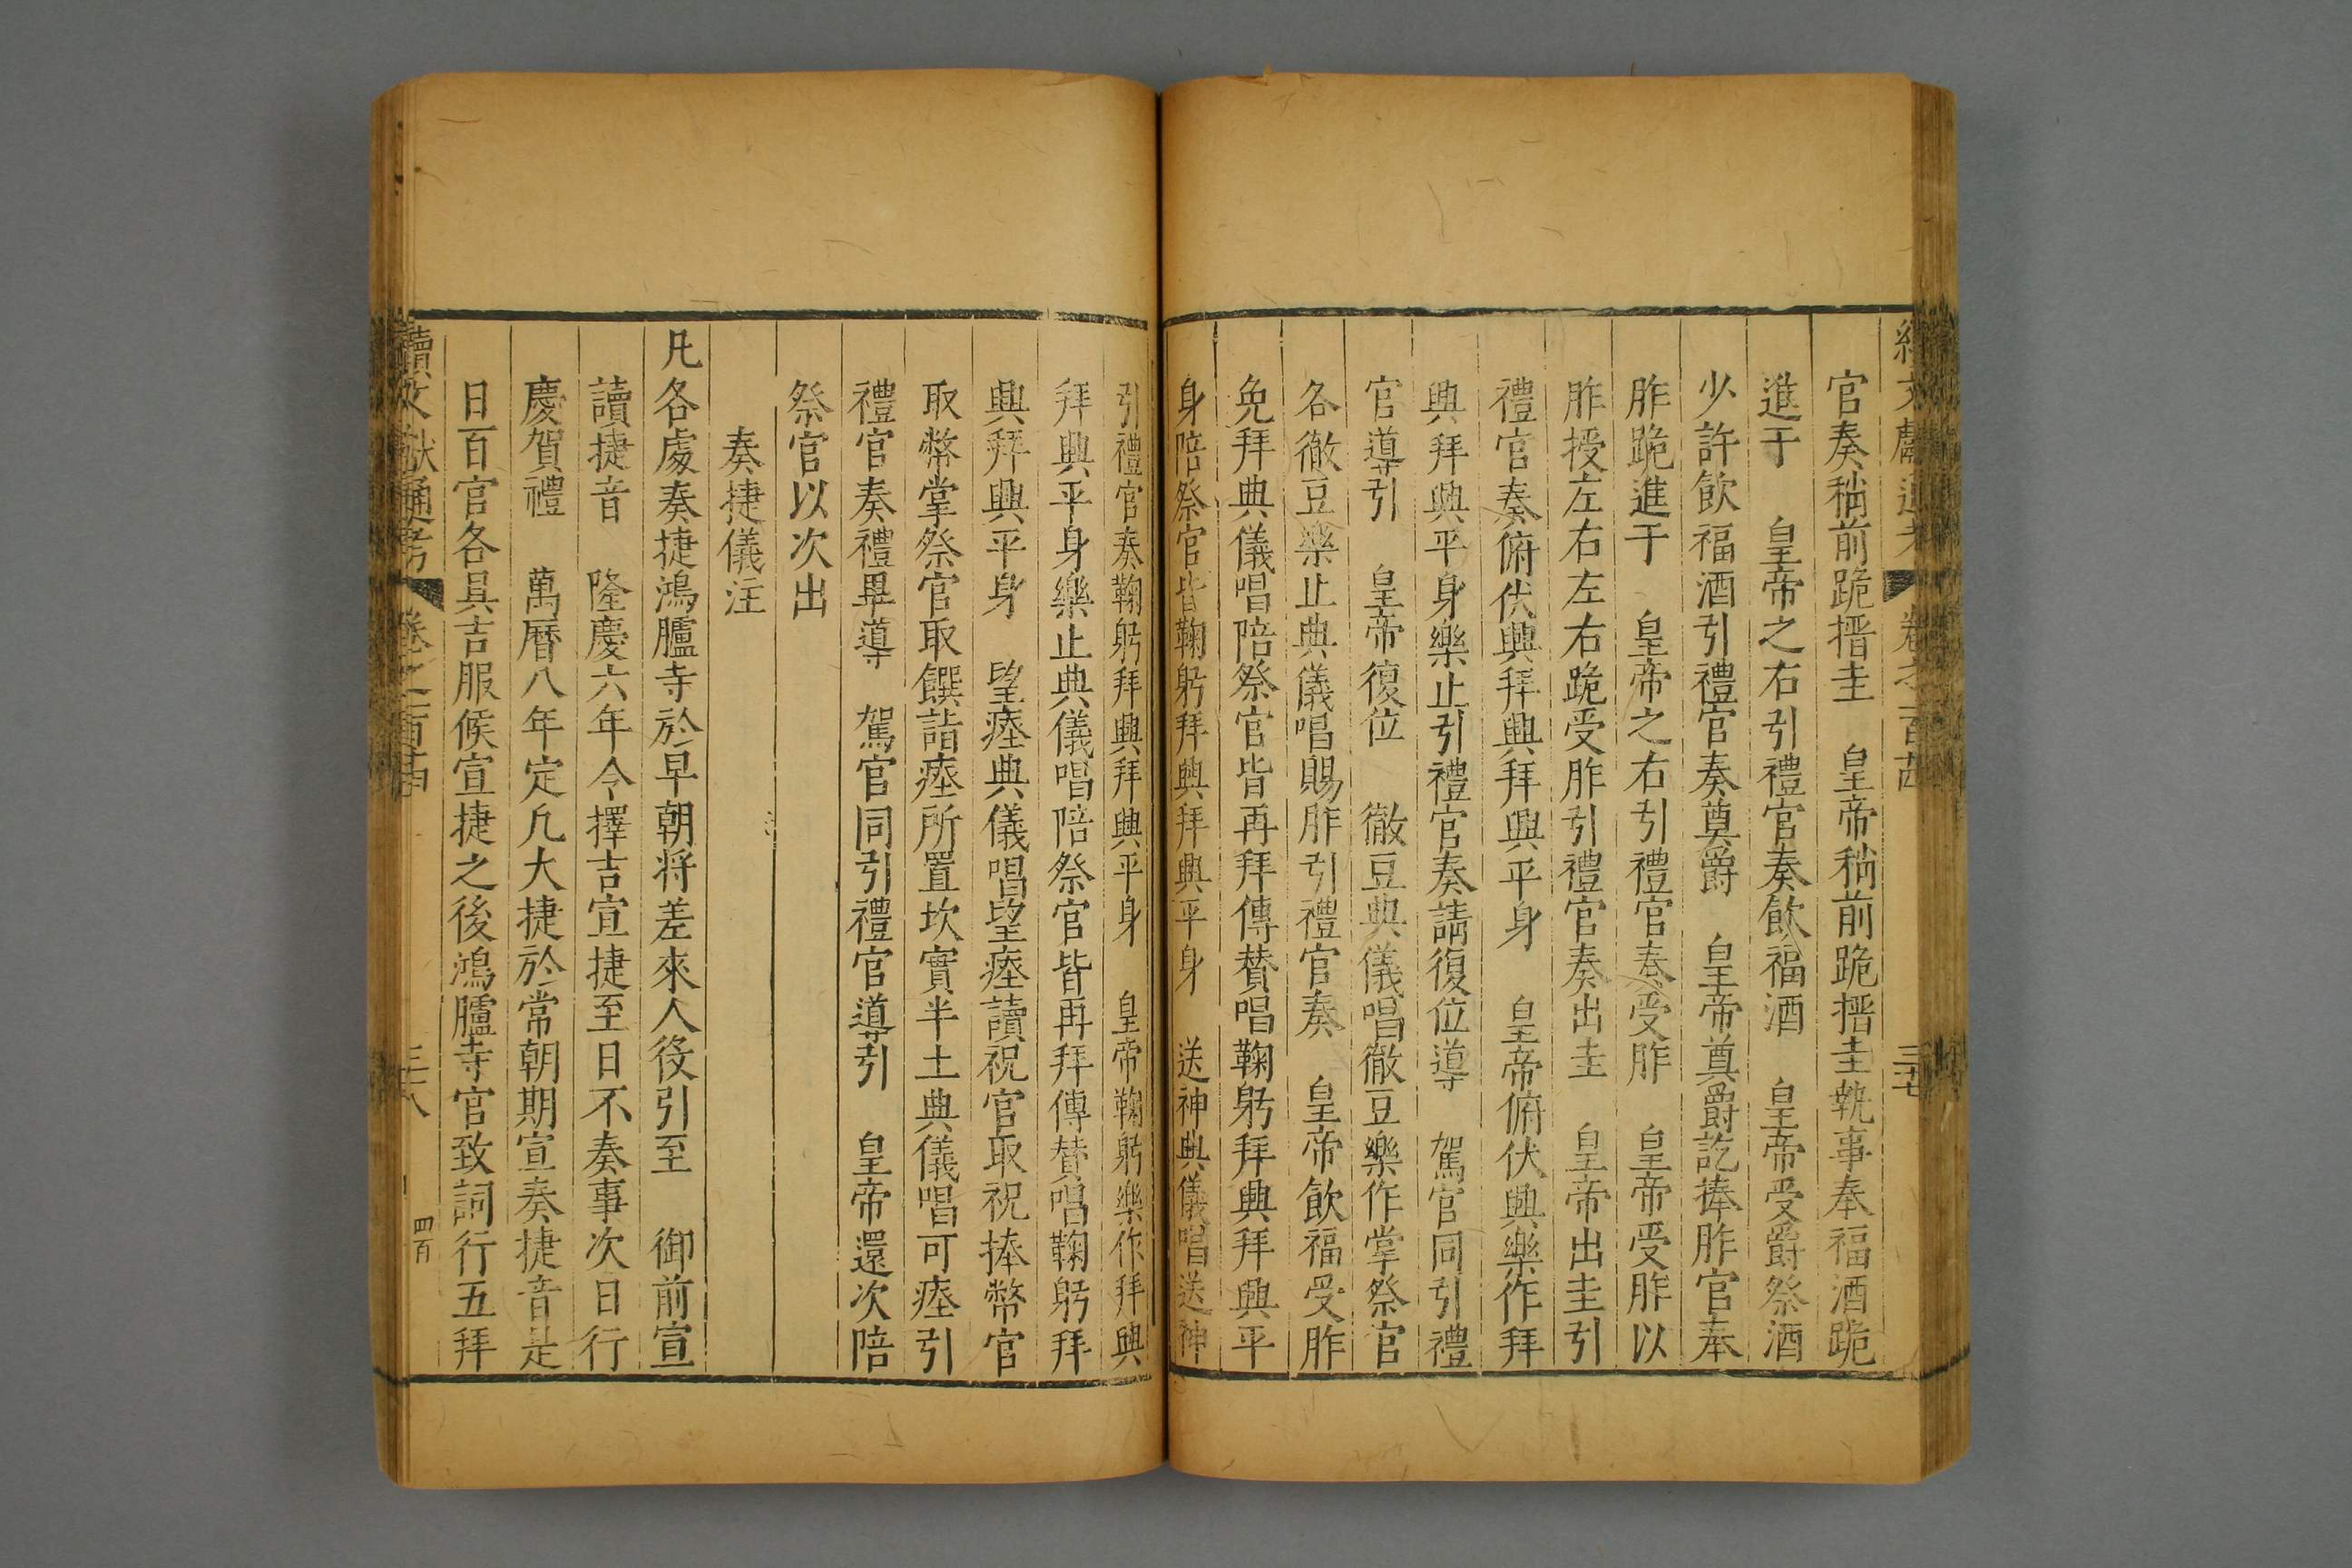 官奏稍前跪搢圭　皇帝稍前跪搢圭執事奉福酒跪
進于　皇帝之右引禮官奏飲福酒　皇帝受爵祭酒
少許飲福酒引禮官奏奠爵　皇帝奠爵訖捧胙官奉
胙跪進于　皇帝之右引禮官奏受胙　皇帝受胙以
胙授左右左右跪受胙引禮官奏出圭　皇帝出圭引
禮官奏俯伏興拜興拜興平身　皇帝俯伏興樂作拜
興拜興平身樂止引禮官奏請復位導　駕官同引禮
官導引　皇帝復位　徹豆典儀唱徹豆樂作掌祭官
各徹豆樂止典儀唱賜胙引禮官奏　皇帝飲福受胙
免拜典儀唱陪祭官皆再拜傳賛唱鞠躬拜興拜興平
身陪祭官皆鞠躬拜興拜興平身　送神典儀唱送神
引禮官奏鞠躬拜興拜興平身　皇帝鞠躬樂作拜興
拜興平身樂止典儀唱陪祭官皆再拜傳賛唱鞠躬拜
興拜興平身　望瘞典儀唱望瘞讀祝官取祝捧幣官
取幣掌祭官取饌詣瘞所置坎實半土典儀唱可瘞引
禮官奏禮畢導　駕官同引禮官導引　皇帝還次陪
祭官以次出
奏捷儀注
凡各處奏捷鴻臚寺於早朝将差來人役引至　御前宣
讀捷音　隆慶六年令擇吉宣捷至日不奏事次日行
慶賀禮　萬曆八年定凡大捷於常朝期宣奏捷音是
日百官各具吉服候宣捷之後鴻臚寺官致詞行五拜
續文献通考　卷之百古　三十八　四百